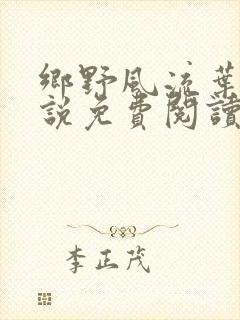 鄉野風流葉
說免費閱讀
李正茂